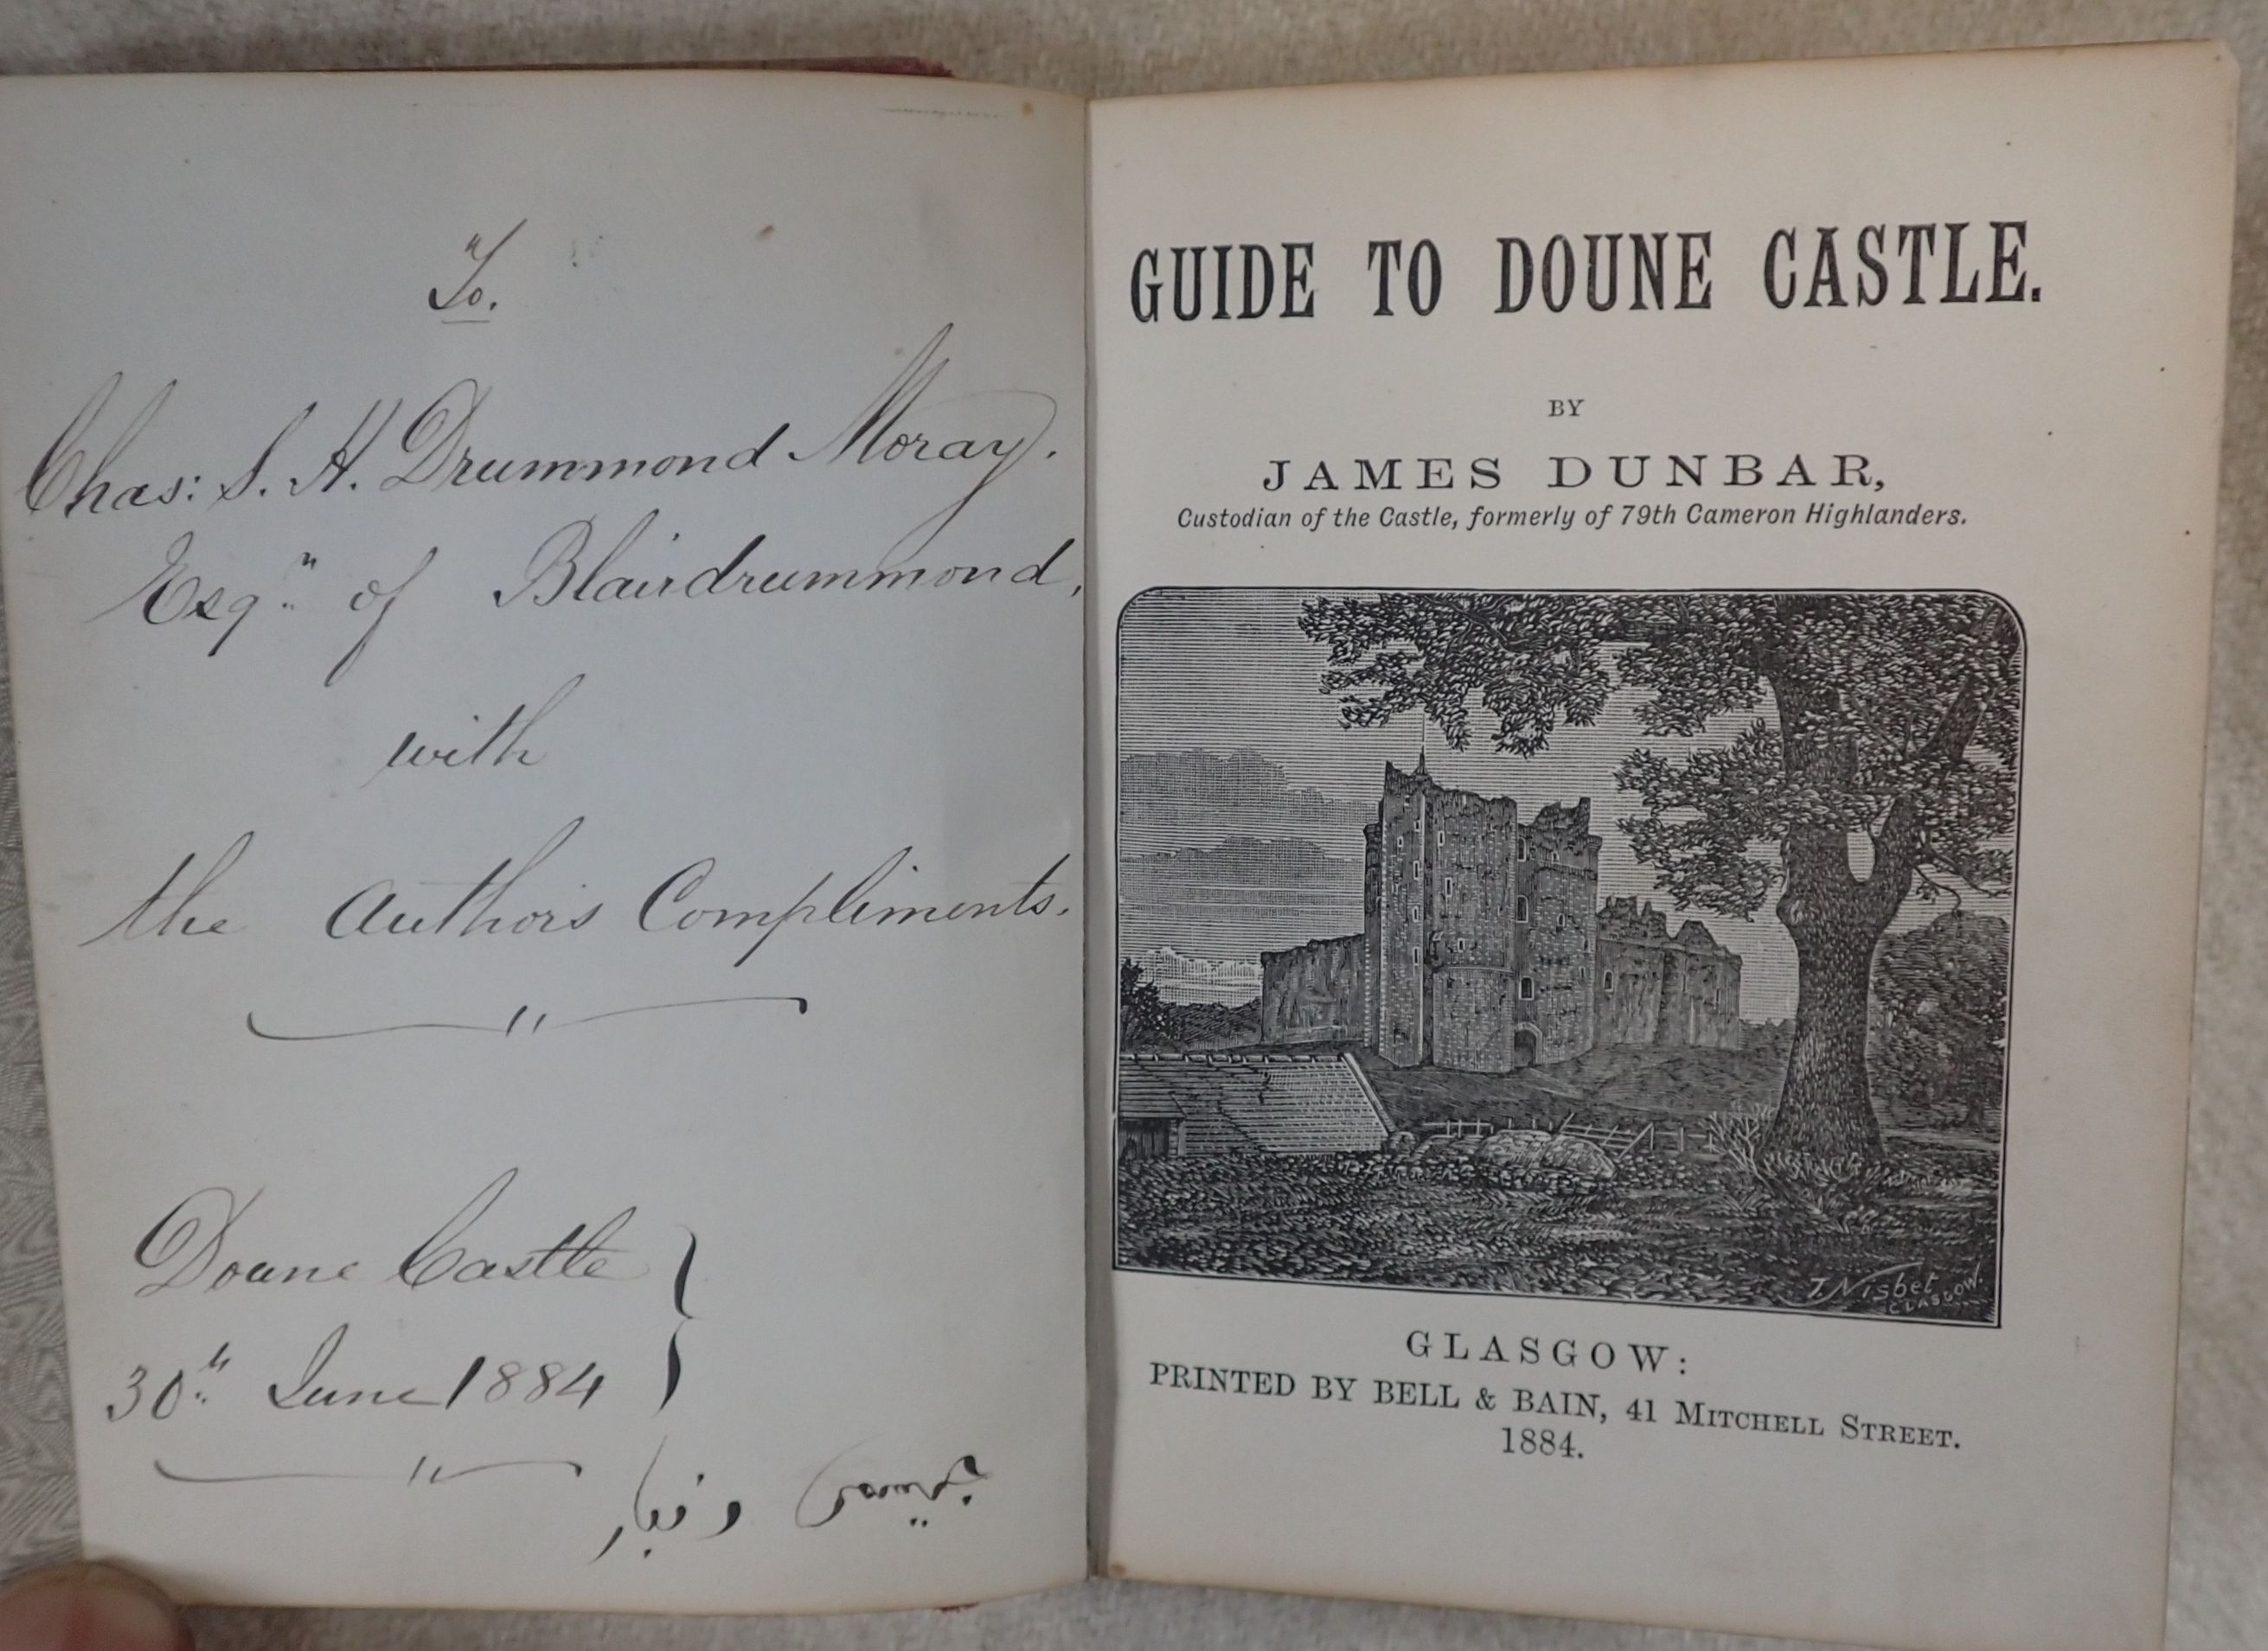 To.
Chas: S. H. Drummond Moray.
Esqr. of Blairdrummond,
with
the Authors Compliments.
Doune Castle
30th June 1884
جیمس دنبار
GUIDE TO DOUNE CASTLE.
BY
JAMES DUNBAR,
Custodian of the Castle, formerly of 79th Cameron Highlanders.
J. Nisbet
GLASGOW.
GLASGOW:
PRINTED BY BELL & BAIN, 41 MITCHELL STREET.
1884.